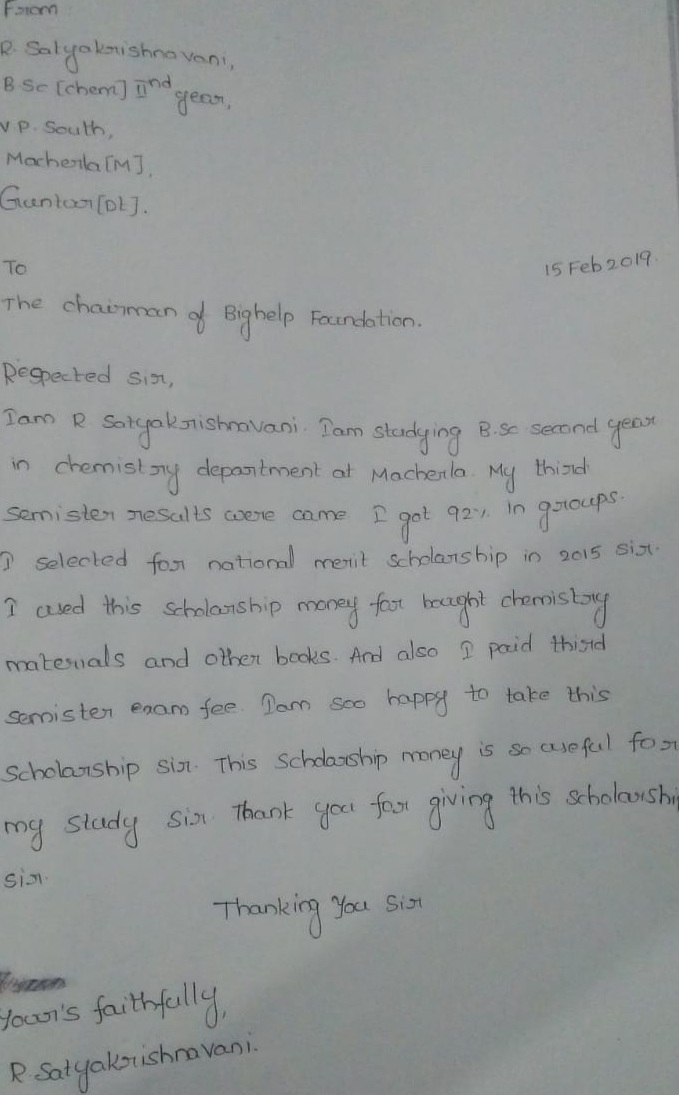 From
R. Satyakrishnavani,
B.Sc [chem] IInd year,
V.P. South,
Macherla [M],
Guntur [Dt].
To
15 Feb 2019.
The chairman of Bighelp Foundation.
Respected sir,
Iam R. Satyakrishnavani. Iam studying B.Sc second year
in chemistry department at Macherla. My third
semister results were came I got 92% in groups.
I selected for national merit scholarship in 2015 sir.
I used this scholarship money for bought chemistry
materials and other books. And also I paid third
semister exam fee. Iam soo happy to take this
scholarship sir. This scholarship money is so useful for
my study sir. Thank you for giving this scholarship
sir.
Thanking You Sir
Your's faithfully,
R. Satyakrishnavani.